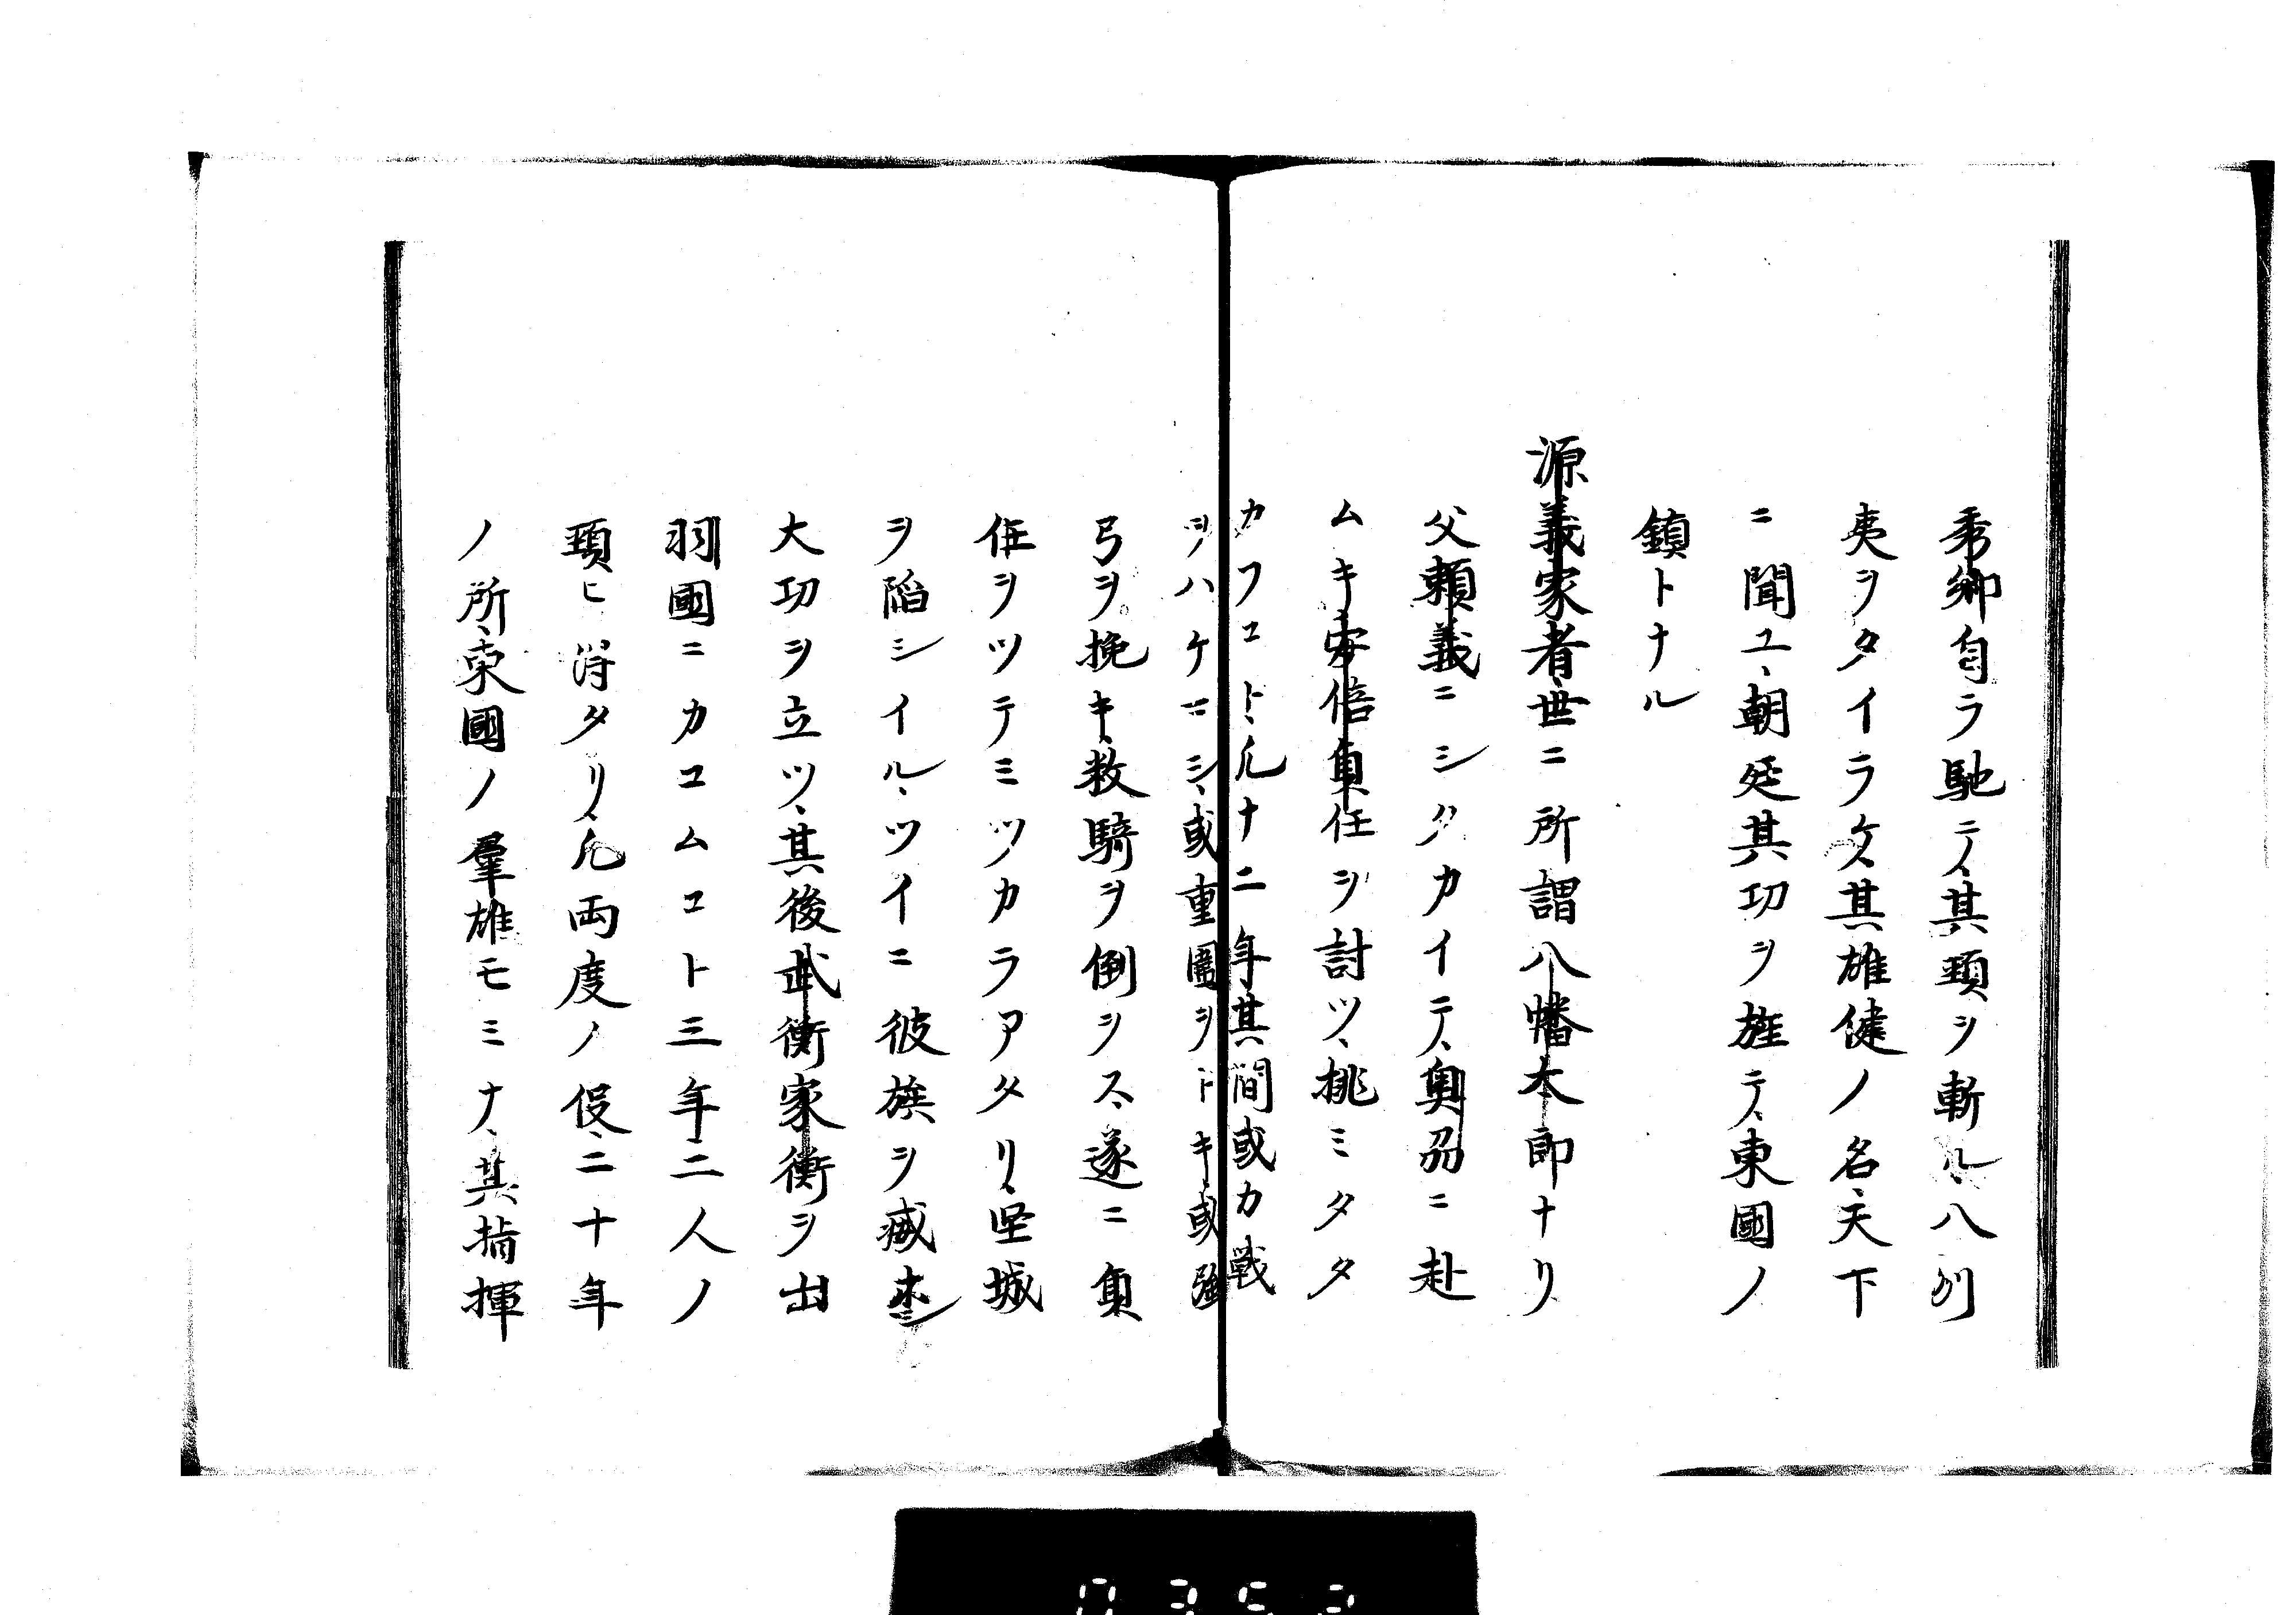 秀郷自ラ馳テ、其頸ヲ斬ル、八州
夷ヲタイラク、其雄健ノ名、天下
ニ聞ユ、朝廷其功ヲ旌テ、東國ノ
鎮トナル
源義家者、世ニ所謂八幡太郎ナリ
父頼義ニシタカイテ、奥刕ニ赴
ムキ、安倍貞任ヲ討ツ、挑ミタタ
カフコト、凡十二年、其間或力戰
ヲハケマシ、或重圍ヲトキ、或強
弓ヲ挽キ、数騎ヲ倒ヲス、遂ニ貞
任ヲツテミツカラアタリ、堅城
ヲ陥シイル、ツイニ彼族ヲ滅ホシ
大功ヲ立ツ、其後武衡家衡ヲ出
羽國ニカコムコト三年、二人ノ
頸ヒ得タリ、凡両度ノ役、二十年
ノ所、東國ノ羣雄モミナ、其揩揮
0352